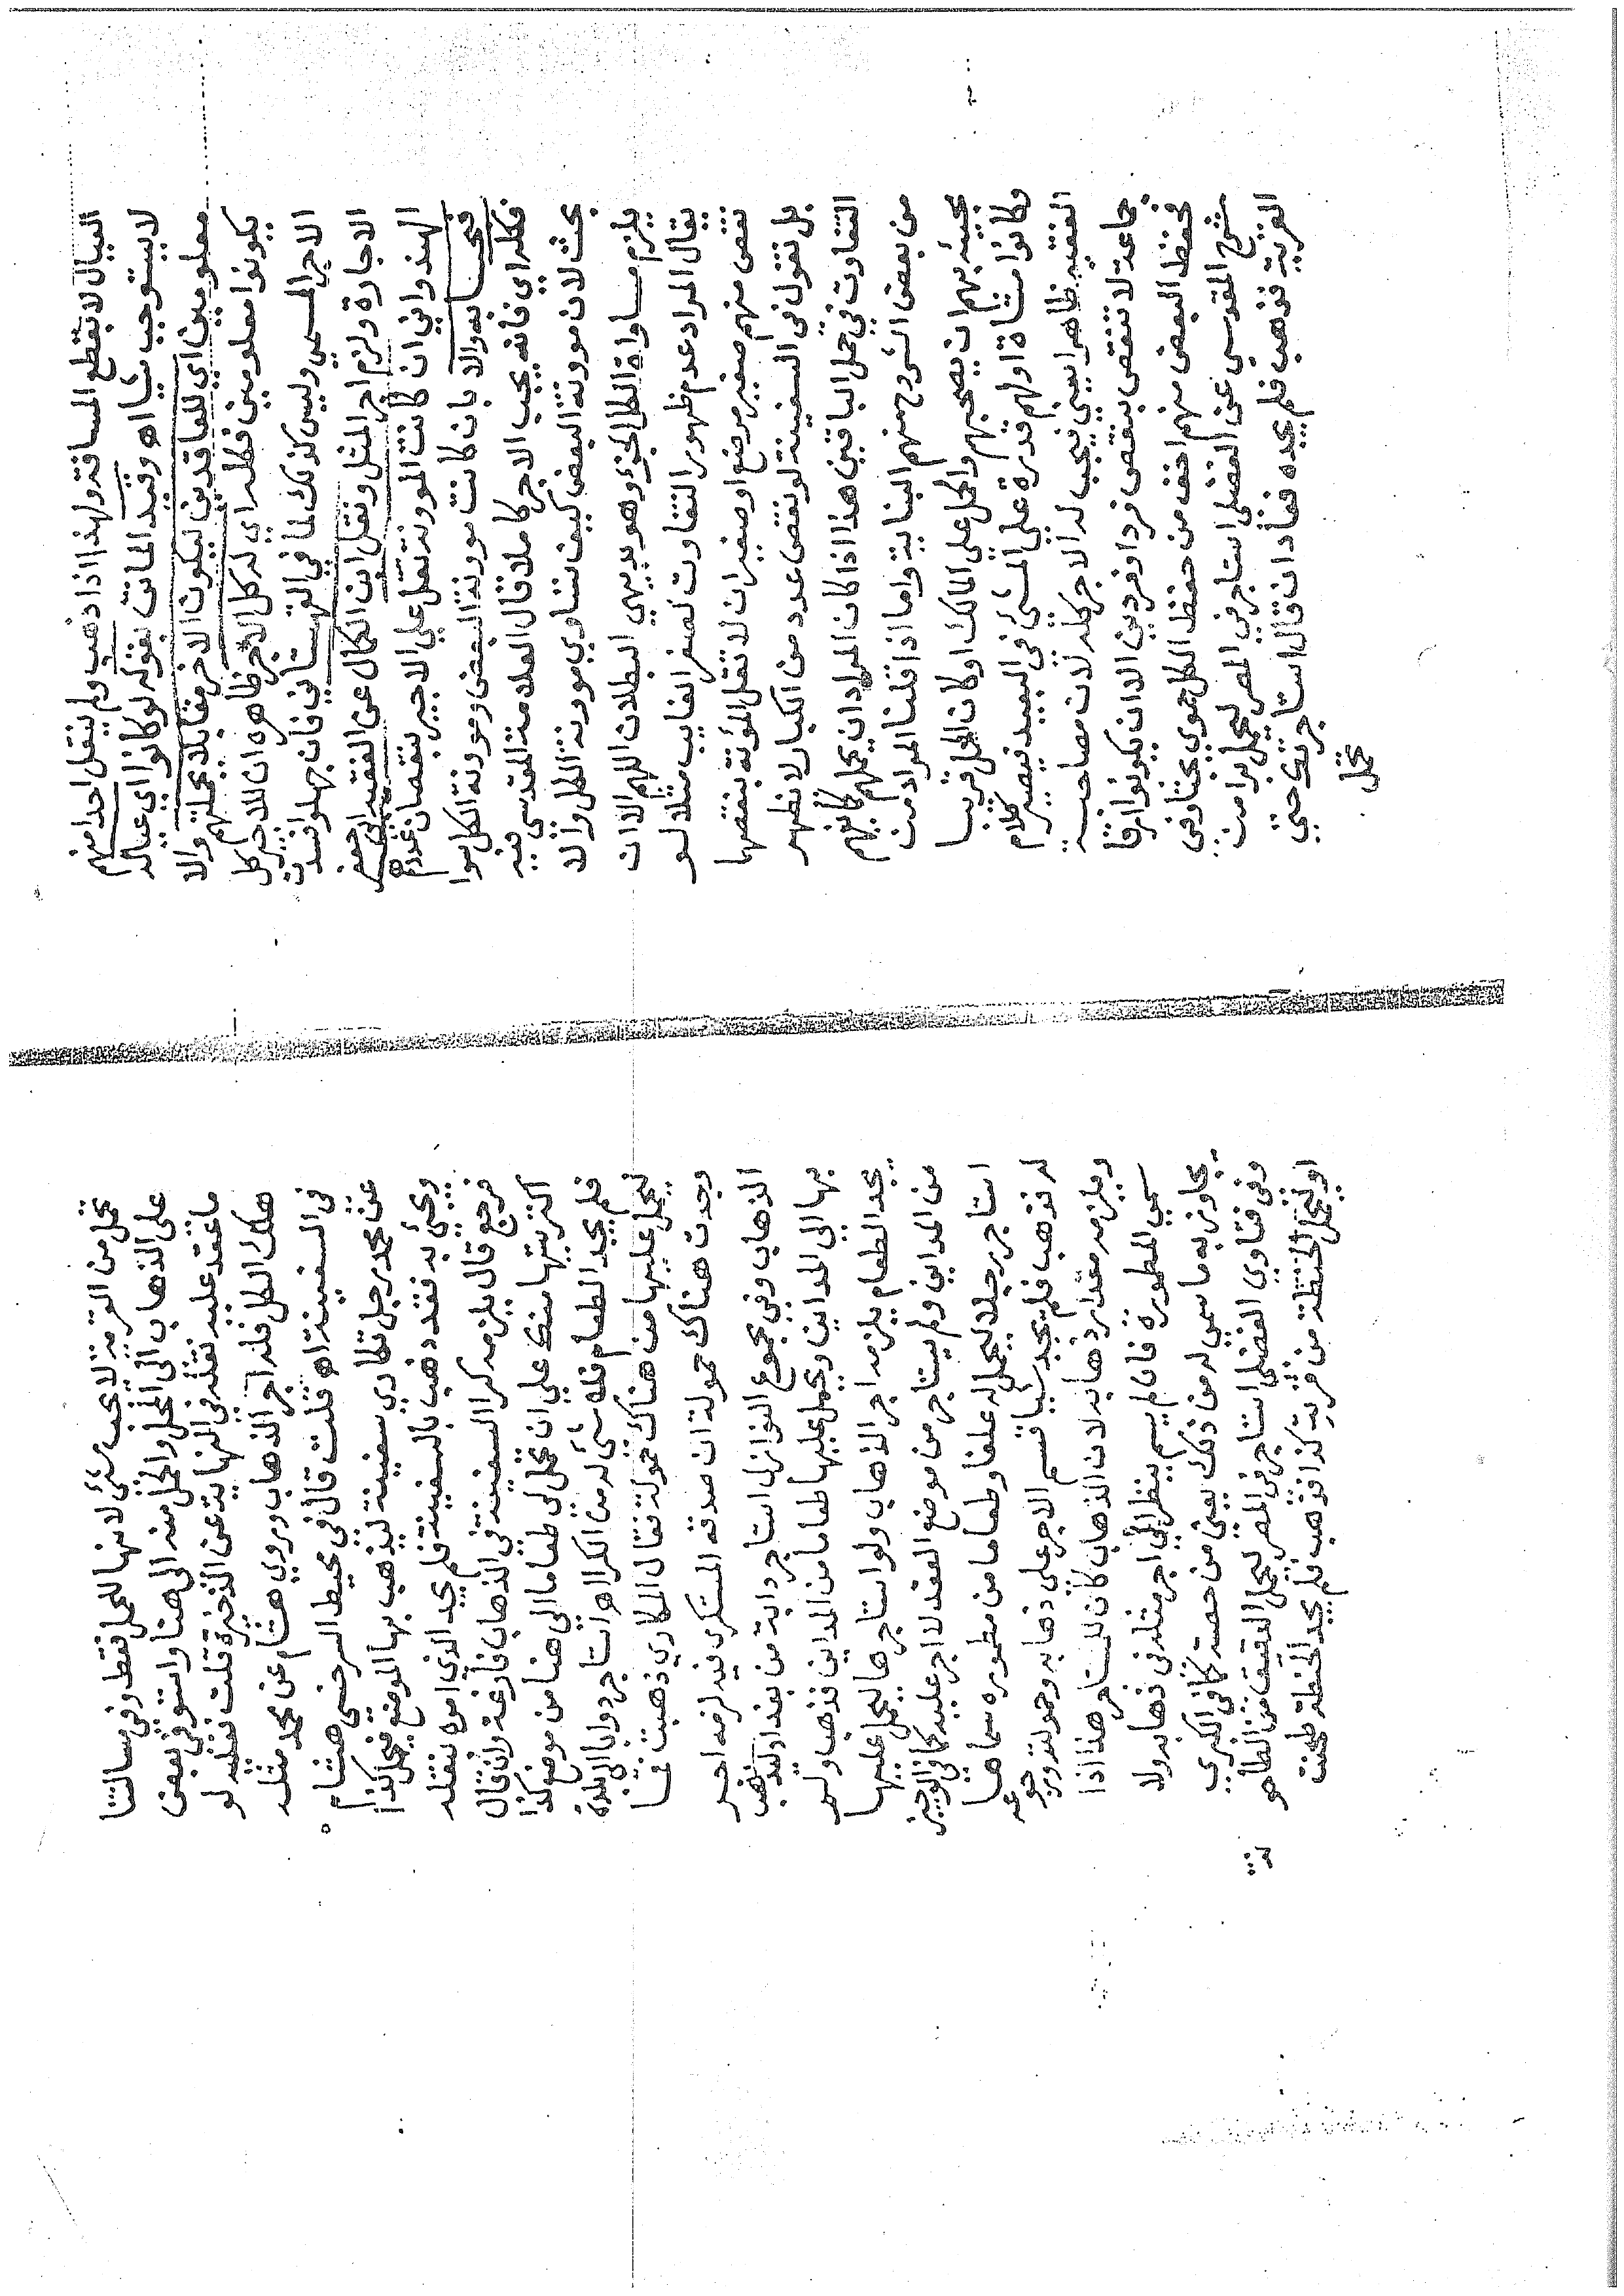 العيال لا بقطع المسافة ولهذا اذا ذهب ولم ينقل احدا منهم
لا يستوجب شيا اه وقيد الماتن بقوله لو كانوا اي عياله
معلومين اي للعاقدين ليكون الاجر مقابلا بجملتهم والا
يكونوا معلومين فكله اي له كل الاجر ظاهره ان للاجير كل
الاجر المسمى وليس كذلك لما في القهستاني فان جهلوا فسدت
الاجارة ولزم اجر المثل ونقل ابن الكمال عن الفقيه ابي جعفر
الهندواني ان كانت المؤونة تقل على الاجير بنقصان عددهم
فبحسابه والا بان كانت مؤونة البعض ومؤونة الكل سوا
فكله اي فانه يجب الاجر كاملا قال العلامة المقدسي فيه
بحث لان مؤونة البعض كيف تساوي مؤونة الكل والا
يلزم مساواة الكل الجزؤ وهو بديهي البطلان اللهم الا ان
يقال المراد عدم ظهور التفاوت كصغر الغايب مثلا لو
نقص منهم صغير مرضع او صغيران لا تقل المؤنة بنقصهما
بل نقول في السفينة لو نقص عدد من الكبار لا تظهر
التفاوت في حمل الباقين هذا اذا كان المراد ان يحملهم كما يفهم
من بعض الشروح منهم العناية واما اذا قلنا المراد من
مجيئه بهم ان يصحبهم والحمل على المالك او كان المحل قريبا
وكانوا مشاة او لهم قدرة على المشي في البعيد فيصير كلام
الفقيه ظاهرا يعني فيجب له الاجر كله لان مصاحبة
جماعة لا تنقص بنقص فرد او فردين الا ان يكونوا ارقا
فحفظ البعض منهم اخف من حفظ الكل حموي بحثا وفي
شرح المقدسي عن الفضلي استاجر في المصر ليحمل برا من
القرية فذهب فلم يجده فعاد ان قال استاجرتك حتى
تحمل
تحمل من القرية لا يجب شئ لانها للحمل فقط وفي مسالتنا
على الذهاب الى المحل والحمل منه الى هنا واستوفى بعض
ما عقد عليه نقله في النهاية عن الذخيرة قلت فعليه لو
هلك الكل فله اجر الذهاب وروي هشام عن محمد مثله
في السفينة اه قلت قال في محيط السرخسي هشام
عن محمد رجل تكارى سفينة ليذهب بها الموضع فيحمل كذا
ويجئ به فقد ذهب بالسفينة فلم يجد الذي امره بنقله
فرجع قال يلزمه كرا السفينة في الذهاب فارغة وان قال
اكتريتها منك على ان تحمل لي طعاما الى هنا من موضع كذا
فلم يجد الطعام فلا شئ له من الكرا اه استاجر دوابا الى بلدة
ليحمل عليها من هناك حمولة فقال المكاري ذهبت فما
وجدت هناك حمولة ان صدقه المستكري فيه لزمه اجر
الذهاب وفي مجموع النوازل استاجر دابة من بغداد ليذهب
بها الى المداين ويحمل عليها طعاما من المداين فذهب ولم
يجد الطعام يلزمه اجر الذهاب ولو استاجرها ليحمل عليها
من المداين ولم يستاجر من موضع العقد لا اجر عليه كما في الوجيز
استاجر رجلا ليحمل له علفا وطعاما من مطموره سماها
له فذهب فلم يجد شيا قسم الاجر على ذهابه وحمولته ورجوعه
ويلزمه مقدار ذهابه لان الذهاب كان للمستاجر هذا اذا
سمى المطمورة فان لم يسم ينظر الى اجر مثله في ذهابه ولا
يجاوز به ما سمى له من ذلك يعني من حصته كما في الكبرى
وفي فتاوى الفضلي استاجر في المصر ليحمل الدقيق من الطاحو
نة
او ليحمل الحنطة من قرية كذا فذهب فلم يجد الحنطة طحنت